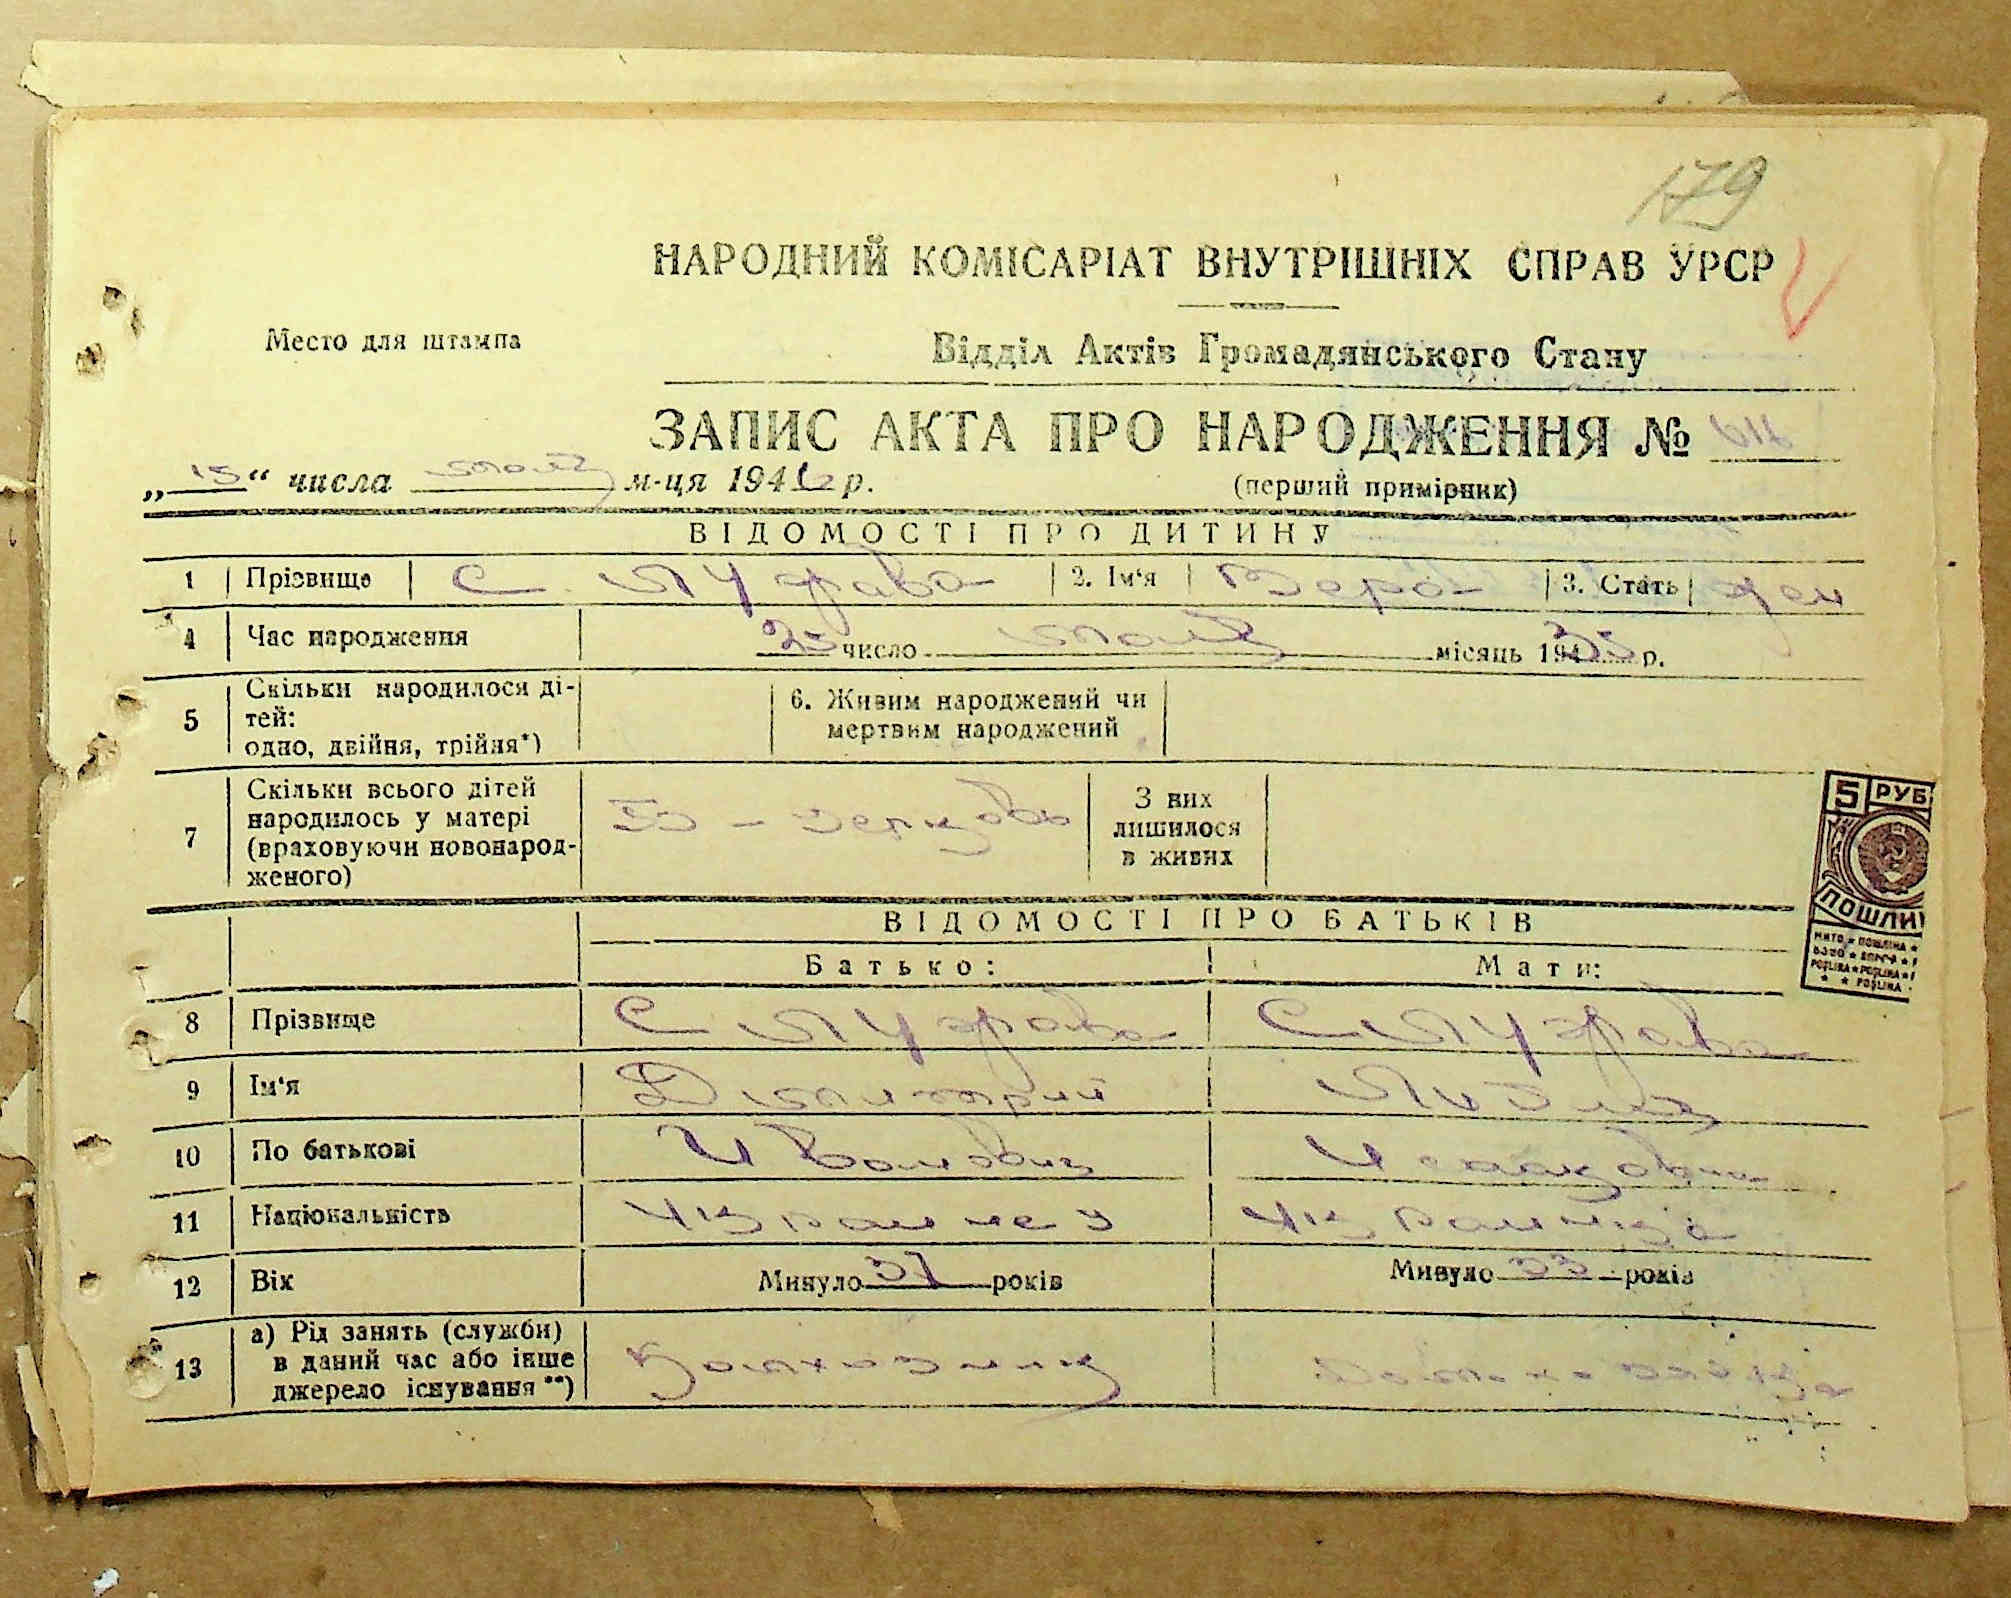 179
НАРОДНИЙ КОМІСАРІАТ ВНУТРІШНІХ СПРАВ УРСР
Место для штампа
Відділ Актів Громадянського Стану
ЗАПИС АКТА ПРО НАРОДЖЕННЯ №
„15“ числа м-ця 194 р.
(перший примірник)
ВІДОМОСТІ ПРО ДИТИНУ
1 Прізвище 2. Ім'я Вера 3. Стать жен
4 Час народження 25 число місяць 1935 р.
5 Скільки народилося ді-
тей:
одно, двійня, трійня*)
6. Живим народжений чи
мертвим народжений
7 Скільки всього дітей
народилось у матері
(враховуючи новонарод-
женого)
З них
лишилося
в живих
5 РУБ
ПОШЛИ
ВІДОМОСТІ ПРО БАТЬКІВ
Батько: Мати:
8 Прізвище
9 Ім'я Дмитрий Лидия
10 По батькові Иванович Исааковна
11 Національність Украинец Украинка
12 Вік Минуло 37 років Минуло 33 років
13 а) Рід занять (служби)
в даний час або інше
джерело існування**)
Колхозник Домохозяйка